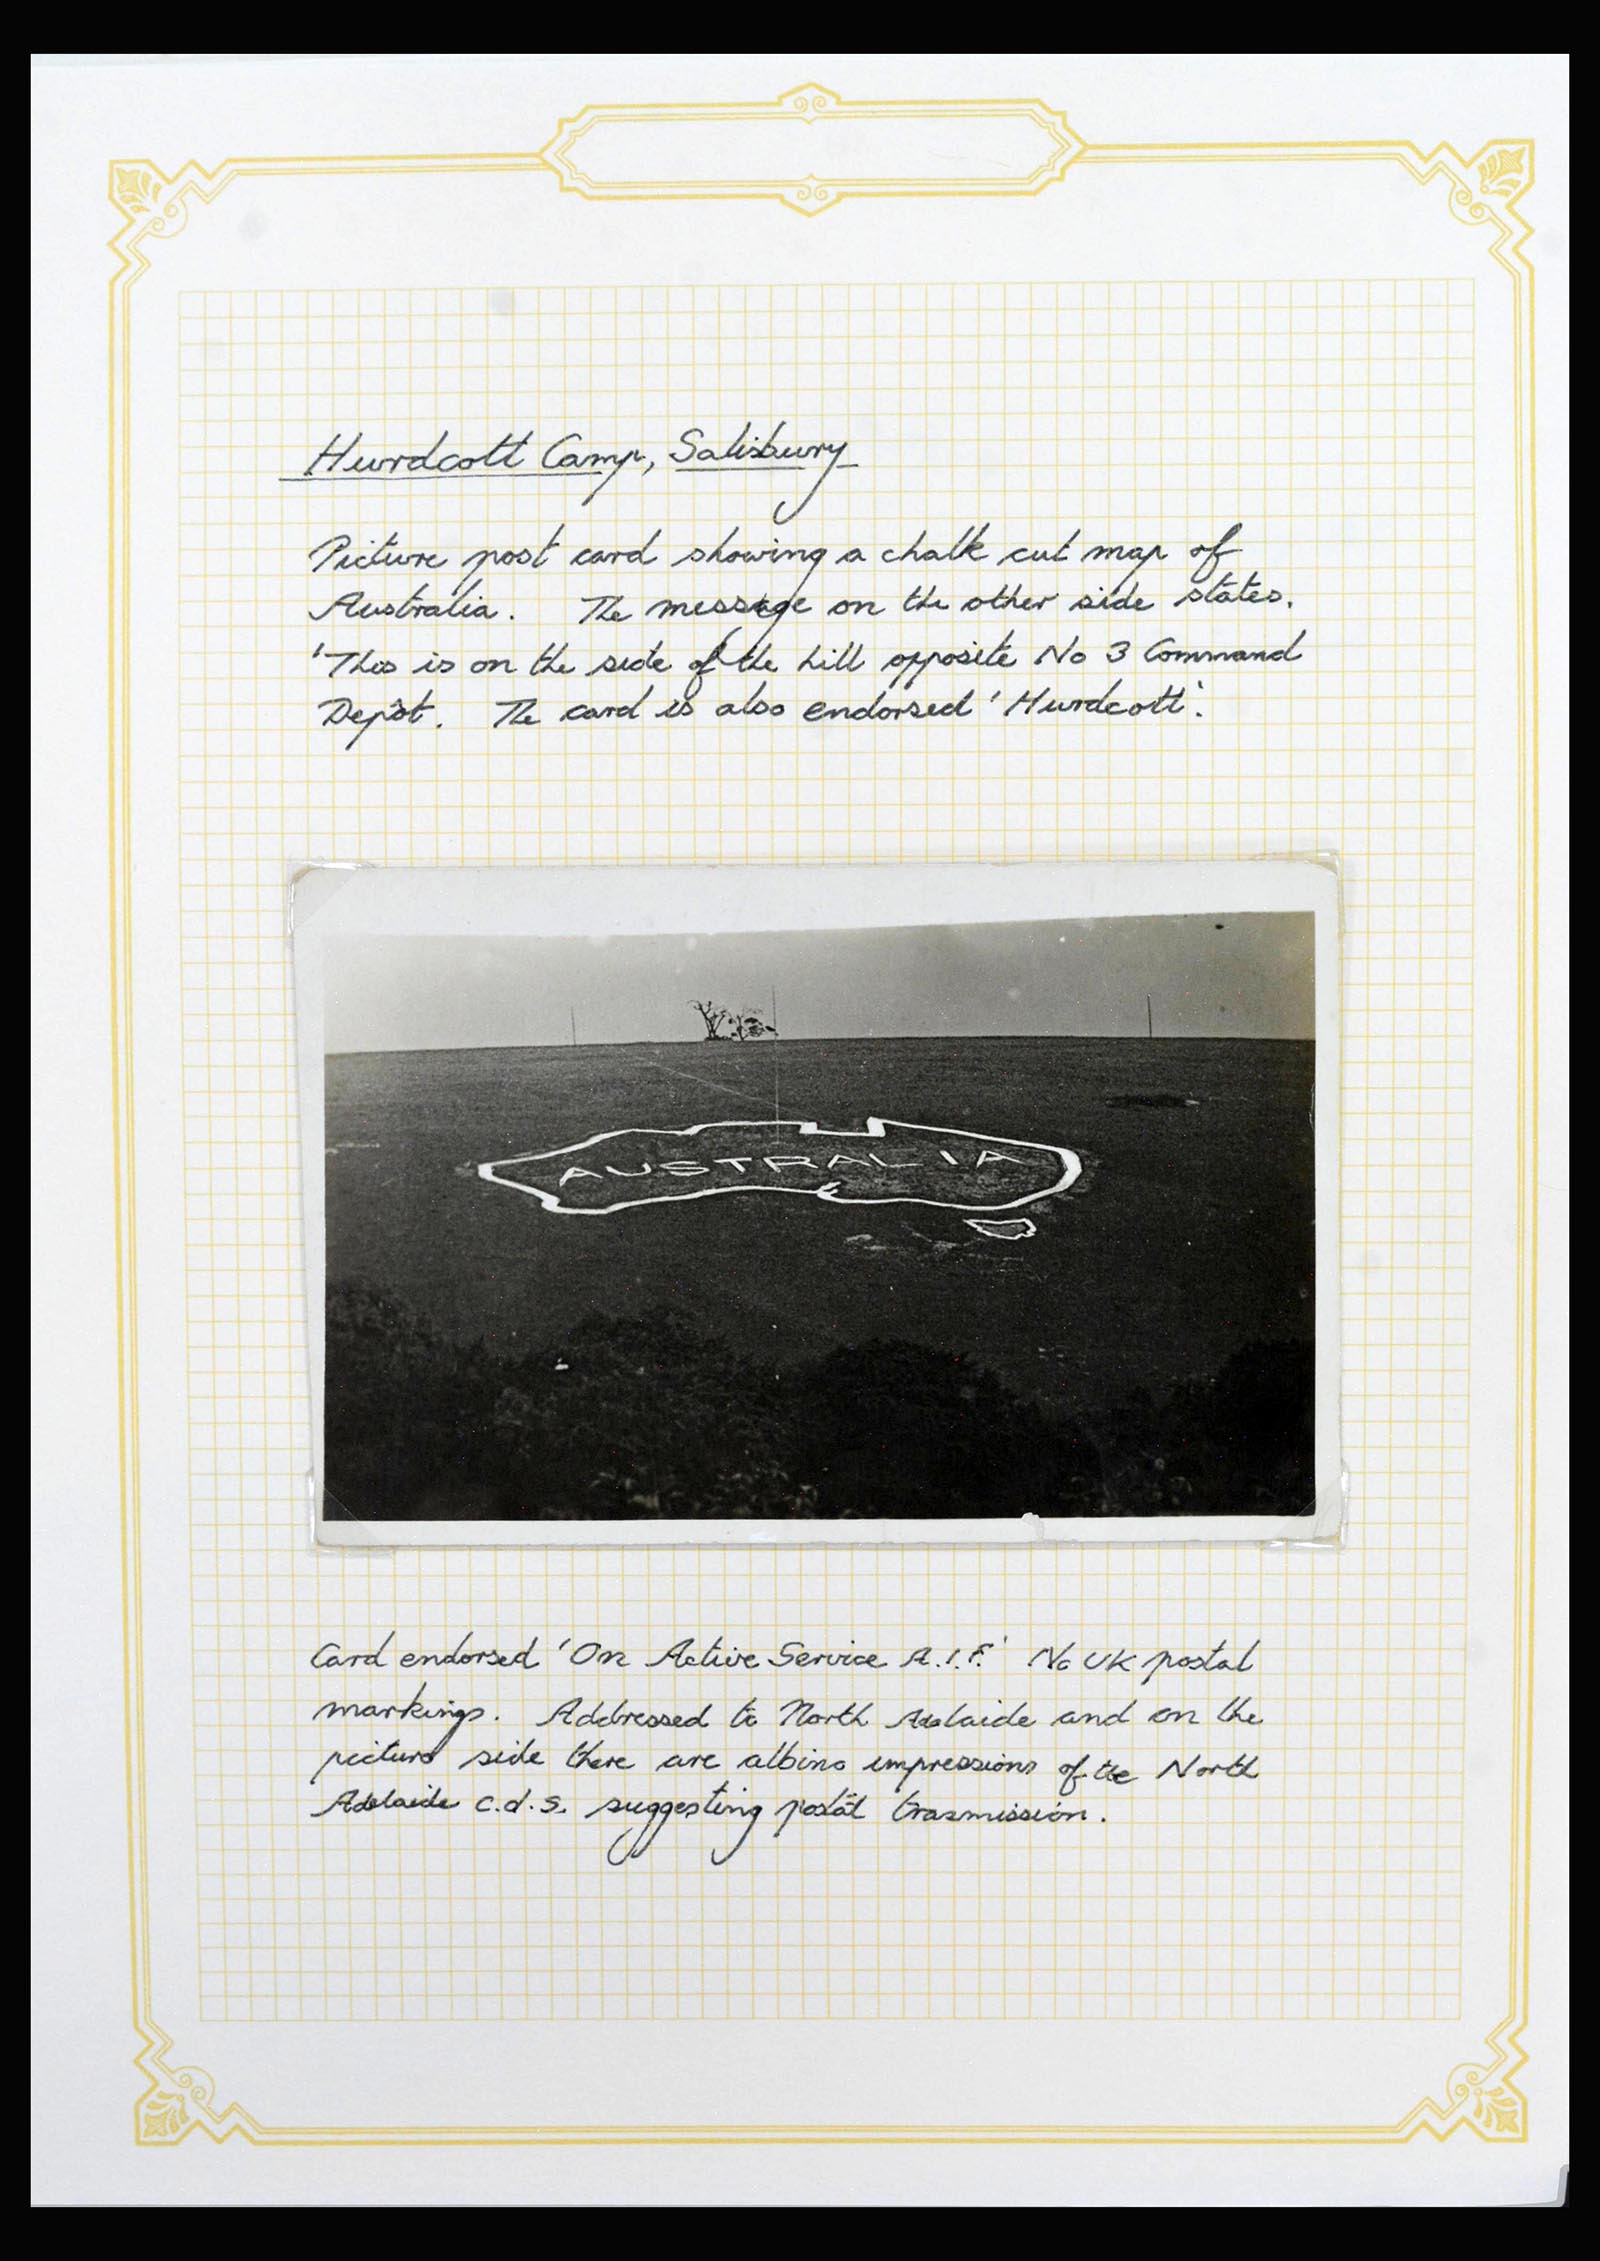 Hurdcott Camp, Salisbury
Picture post card showing a chalk cut map of
Australia. The message on the other side states.
'This is on the side of the hill opposite No 3 Command
Depôt. The card is also endorsed 'Hurdcott'.
AUSTRALIA
Card endorsed 'On Active Service A.I.F.' No UK postal
markings. Addressed to North Adelaide and on the
picture side there are albino impressions of the North
Adelaide c.d.s. suggesting postal trasmission.